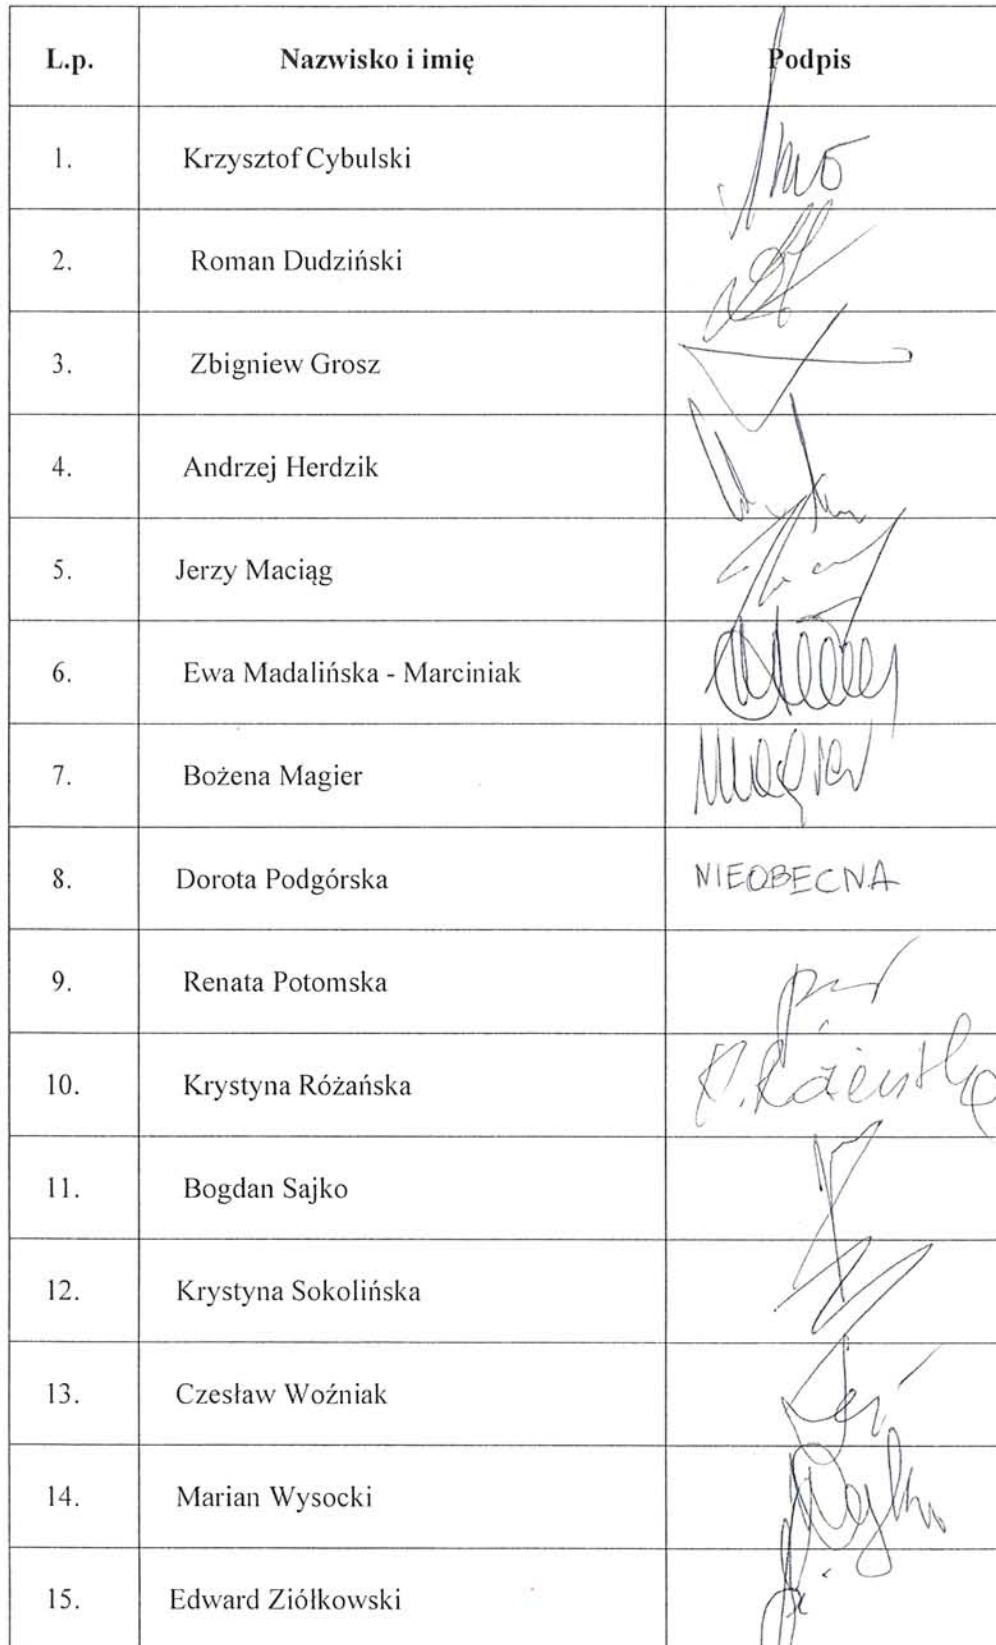 L.p. Nazwisko i imię Podpis
1. Krzysztof Cybulski
2. Roman Dudziński
3. Zbigniew Grosz
4. Andrzej Herdzik
5. Jerzy Maciąg
6. Ewa Madalińska - Marciniak
7. Bożena Magier Magier
8. Dorota Podgórska NIEOBECNA
9. Renata Potomska
10. Krystyna Różańska
11. Bogdan Sajko
12. Krystyna Sokolińska
13. Czesław Woźniak
14. Marian Wysocki
15. Edward Ziółkowski